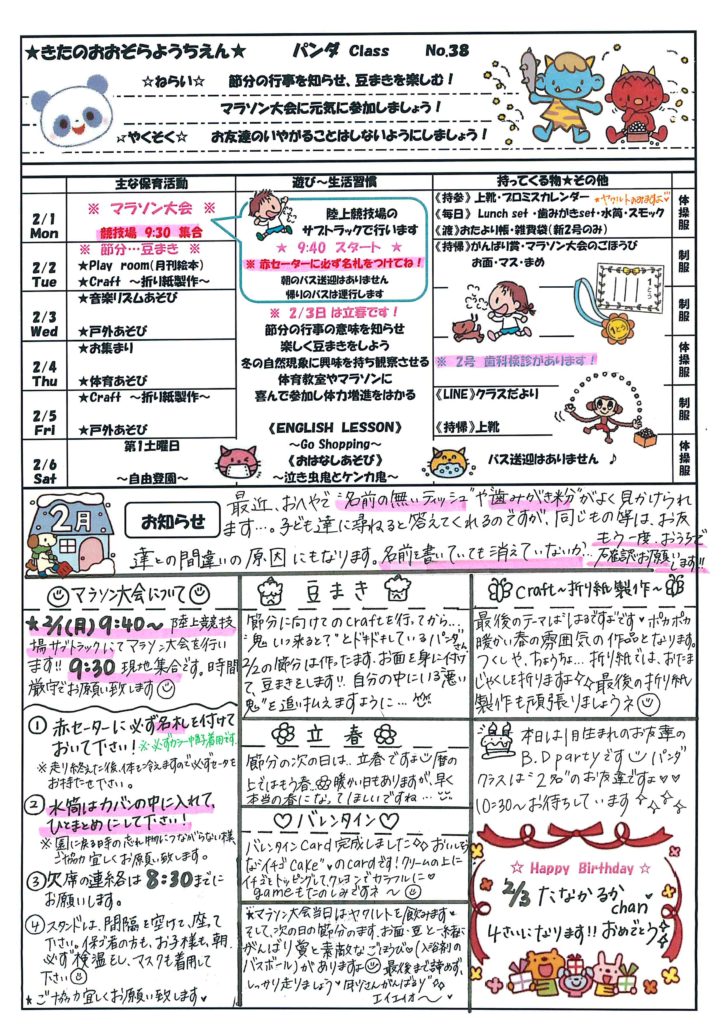 ★きたのおおぞらようちえん★ パンダ Class No.38
☆ねらい☆ 節分の行事を知らせ、豆まきを楽しむ！
マラソン大会に元気に参加しましょう！
☆やくそく☆ お友達のいやがることはしないようにしましょう！
主な保育活動 遊び～生活習慣 持ってくる物★その他
2/1
Mon
※ マラソン大会 ※
競技場 9:30 集合
陸上競技場の
サブトラックで行います
★ 9:40 スタート ★
※ 赤セーターに必ず名札をつけてね！
朝のバス送迎はありません
帰りのバスは運行します
《持参》上靴・プロミスカレンダー ★ヤクルトのみますよ
《毎日》 Lunch set・歯みがきset・水筒・スモック
《渡》おたより帳・雑費袋（新2号のみ）
体操服
2/2
Tue
※ 節分…豆まき ※
★Play room（月刊絵本）
★Craft ～折り紙製作～
《持帰》がんばり賞・マラソン大会のごほうび
お面・マス・まめ
制服
2/3
Wed
★音楽リズムあそび
★戸外あそび
※ 2/3日 は立春です！
節分の行事の意味を知らせ
楽しく豆まきをしよう
冬の自然現象に興味を持ち観察させる
体育教室やマラソンに
喜んで参加し体力増進をはかる
1とう
1とう
制服
2/4
Thu
★お集まり
★体育あそび
※ 2号 歯科検診があります！
体操服
2/5
Fri
★Craft ～折り紙製作～
★戸外あそび
《ENGLISH LESSON》
～Go Shopping～
《おはなしあそび》
～泣き虫鬼とケンカ鬼～
《LINE》クラスだより
《持帰》上靴
制服
2/6
Sat
第1土曜日
～自由登園～
バス送迎はありません ♪
体操服
2月
お知らせ
最近、おへやで"名前の無いティッシュ"や"歯みがき粉"がよく見かけられ
ます…。子ども達に尋ねると答えてくれるのですが、同じもの等は、お友
達との間違いの原因にもなります。名前を書いていても消えていないか…
もう一度、おうちで
ご確認お願いします!!
マラソン大会について
★2/1(月)9:40～ 陸上競技
場サブトラックにてマラソン大会を行い
ます!! 9:30 現地集合です。時間
厳守でお願い致します
① 赤セーターに必ず名札を付けて
おいて下さい！
※走り終えた後、体も冷えますので必ずセーターを
お持たせ下さい。
② 水筒はカバンの中に入れて、
ひとまとめにして下さい！
※園に戻る時の忘れ物につながらない様
ご協力宜しくお願い致します。
③ 欠席の連絡は8:30までに
お願いします。
④ スタンドは、間隔を空けて、座って
下さい。保護者の方も、お子様も、朝
必ず検温をし、マスクも着用して
下さい
＊ご協力宜しくお願い致します♥
豆まき
節分に向けてのcraftを行ってから…
"鬼いつ来るとて"とドキドキしているパンダさん
2/2の節分は作ったます、お面を身に付け
て、豆まきをします!! 自分の中にいる"悪い
鬼"を追い払えますように…
立春
節分の次の日は、立春ですよ 暦の
上ではもう春。暖かい日もありますが、早く
本当の春になってほしいですね…
バレンタイン
バレンタインCard完成しました おいしそう
な"イチゴCake"のcardです！クリームの上に
イチゴをトッピングして、クレヨンでカラフルに
gameもたのしみですネ～
＊マラソン大会当日はヤクルトを飲みます♥
そして、次の日の節分のます、お面・豆と一緒に
がんばり賞と素敵なごほうび♥(入浴剤の
バスボール)がありますよ 最後まで諦めず、
しっかり走りましょう
エイエイオー～
Craft～折り紙製作～
最後のテーマは"はるですよ"です♥ポカポカ
暖かい春の雰囲気の作品となります。
つくしや、ちょうちょ…折り紙では、おたま
じゃくしを折りますよ☆☆最後の折り紙
製作も頑張りましょうネ
本日は1月生まれのお友達の
B.D partyです パンダ
クラスは"2名"のお友達ですよ♥♥
10:30～お待ちしています☆☆
☆ Happy Birthday ☆
2/3 たなかるか
chan
4さいになります!! おめでとう☆